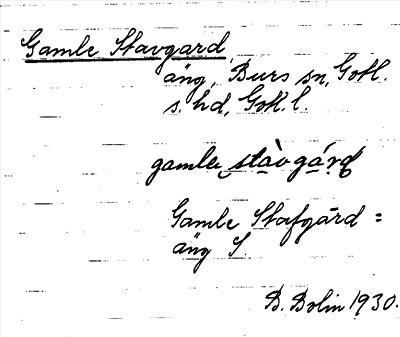 Gamle Stavgard
äng, Burs sn, Gotl.
s. hd, Gotl. l.
gamle stàvgárd
Gamle Stafgård =
äng S.
B. Bolin 1930.